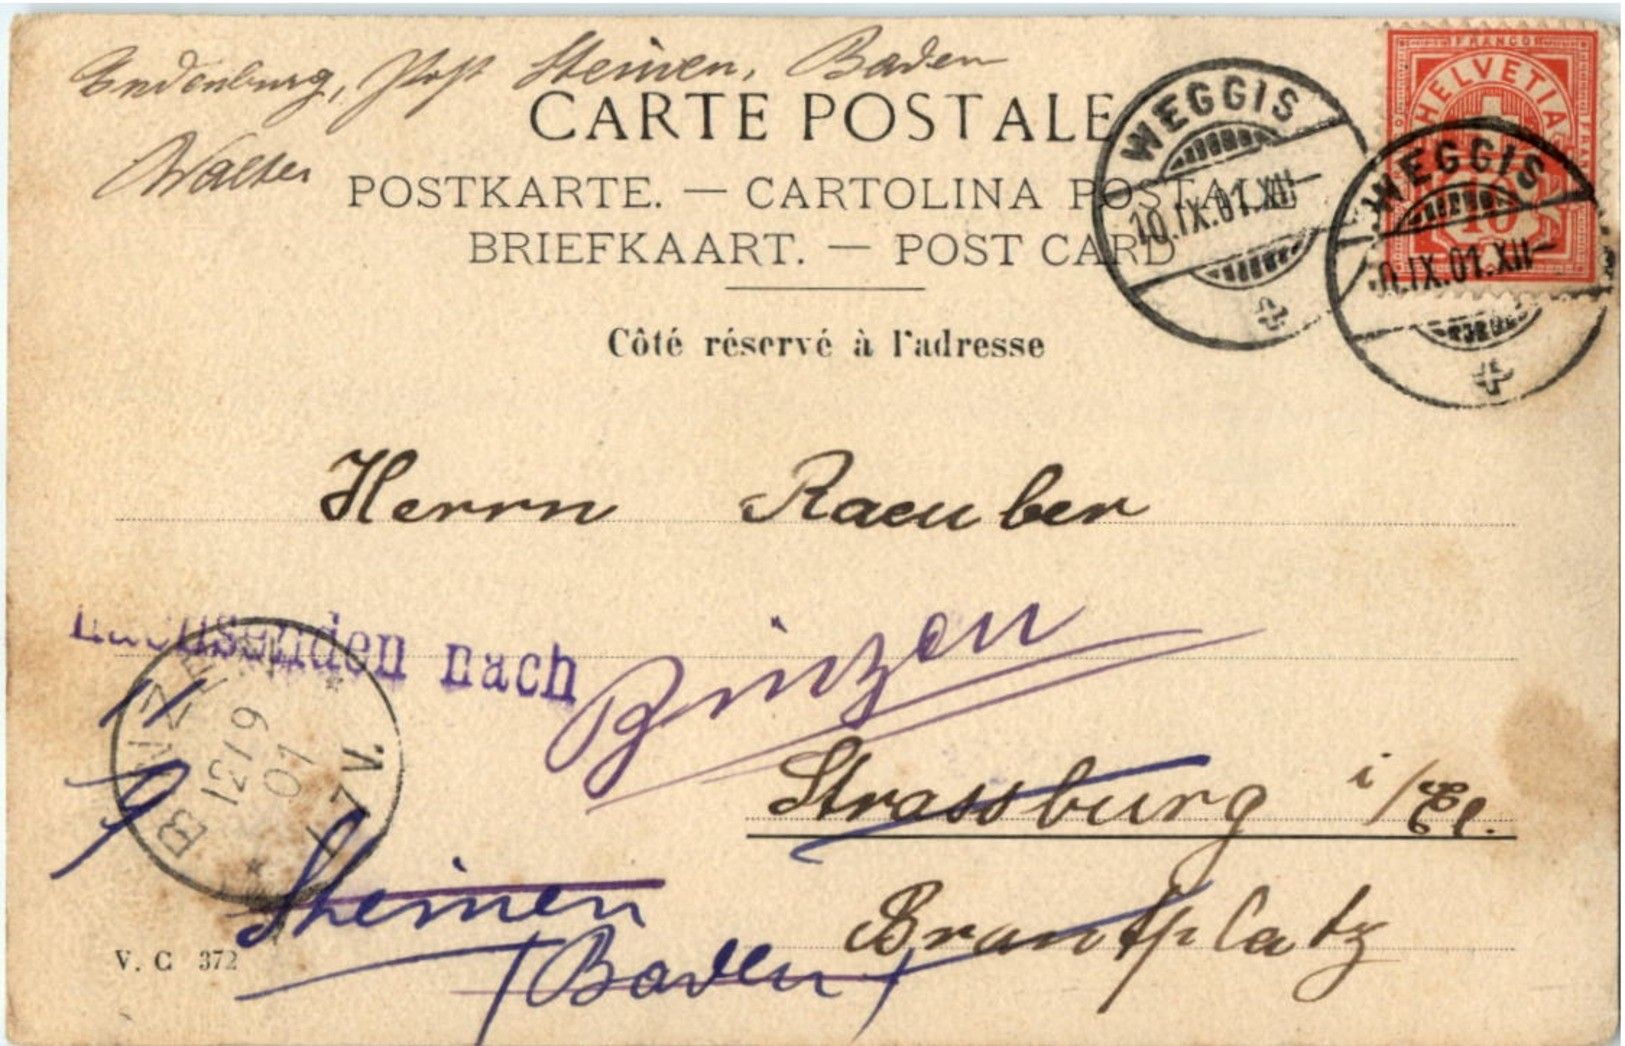 Endenburg, Post Steinen, Baden
Walter
CARTE POSTALE
POSTKARTE. — CARTOLINA POSTALE
BRIEFKAART. — POST CARD
Côté réservé à l'adresse
FRANCO
HELVETIA
10
WEGGIS
10.IX.01.XII—
WEGGIS
0.IX.01.XII—
Herrn Raeuber
nachsenden nach Binzen
BINZEN
12/9
01
11/9
Strassburg i/El.
Brantplatz
Steinen
(Baden)
V. C 372